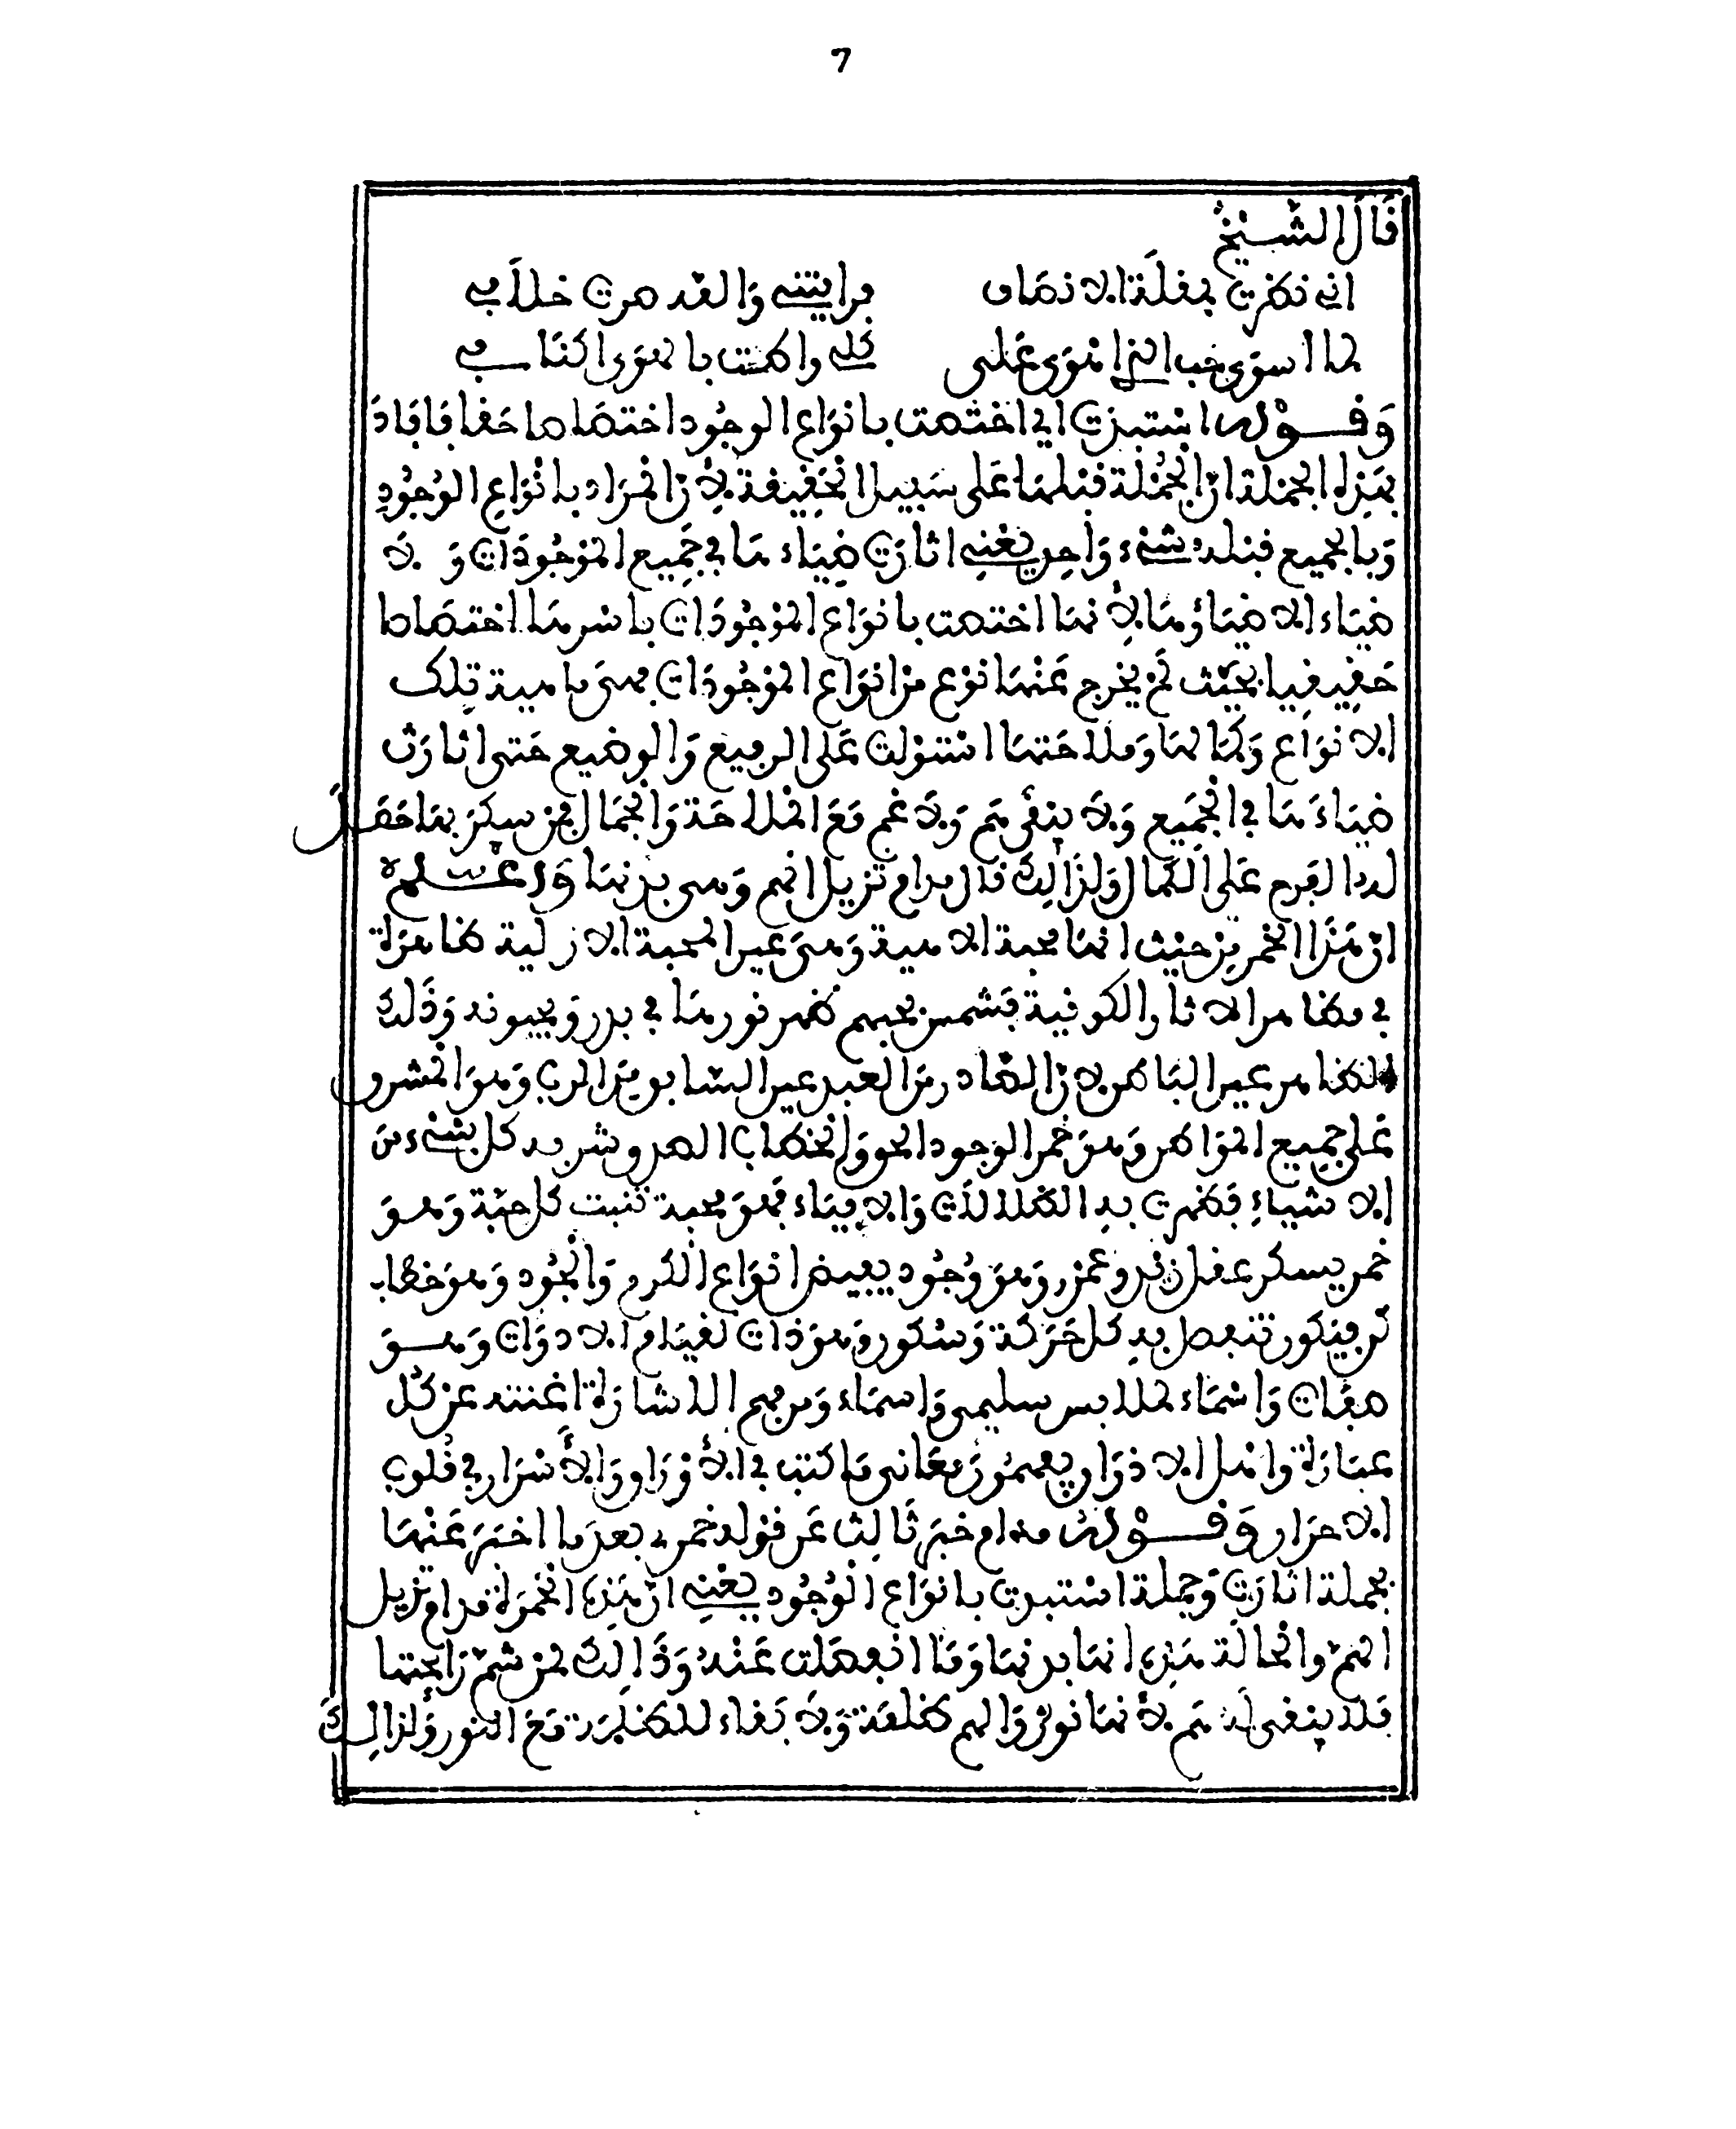 7
قَالَ الشَّيْخُ
اني نظرت بمقلة الانصاف فرأيتني والله صرت خلافي
لما استوى حب الذي اهوى على كلي واكتب بالهوى اكنافي
وَقَوْله استبدت اي اختصت بانواع الوجود اختصاصا حقا فافاد
بهذه الجملة ان الجملة قبلها على سبيل الحقيقة لان المراد بانواع الوجود
وبالجميع قبله شيء واحد يعني اثارت ضياءها في جميع الموجودات ولا
ضياء الا ضياؤها لانها اختصت بانواع الموجودات باسرها اختصاصا
حقيقيا بحيث لم يخرج عنها نوع من انواع الموجودات بهي ماهية تلك
الانواع وكمالها وملاحتها استولت على الرفيع والوضيع حتى اثارت
ضياءها في الجميع ولا يبقى هم ولا غم مع الملاحة والجمال فمن سكر بها حصل
له الفرح على الكمال ولذالك قال مدام تزيل الهم وهي بدنها وَاعْلَم
ان هذا الخمر من حيث انها محبة الاهية وهي عين المحبة الازلية ظاهرة
في مظاهر الاثار الكونية فشمس يحبهم ظهر نورها في بدر ويحبونه وذلك
الظاهر عين الباطن لان الصادر من العبد عين السابق من الرب وهو المشروب
على جميع المواهر وهو خمر الوجود الحق والخطاب الصرف شربه كل شيء من
الاشياء فظهرت به الظلالات والافياء فهو محبة تنبت كل حبة وهو
خمر يسكر عقل زيد وعمرو وهو وجود يفيض انواع الكرم والجود وهو خطاب
كن فيكون تنفصل به كل حركة وسكون وهو ذات لقيام الادوات وهو
صفات واسماء لملابس سليمى واسماء ومن فهم الاشارة اغنته عن كل
عبارة واهل الاذواق يفهمون معاني ما كتب في الاوراق والاسرار في قلوب
الاحرار وَقَوْله مدام خبر ثالث عن قوله خمرة بعد ما اخبر عنها
بجملة اثارت وجملة استبدت بانواع الوجود يعني ان هذه الخمرة مدام تزيل
الهم والحالة هذه انها بدنها وما انفصلت عنه وذالك لمن شم رائحتها
فلا يبقى له هم لانها نور والهم ظلمة ولا بقاء للظلمة مع النور ولذالك